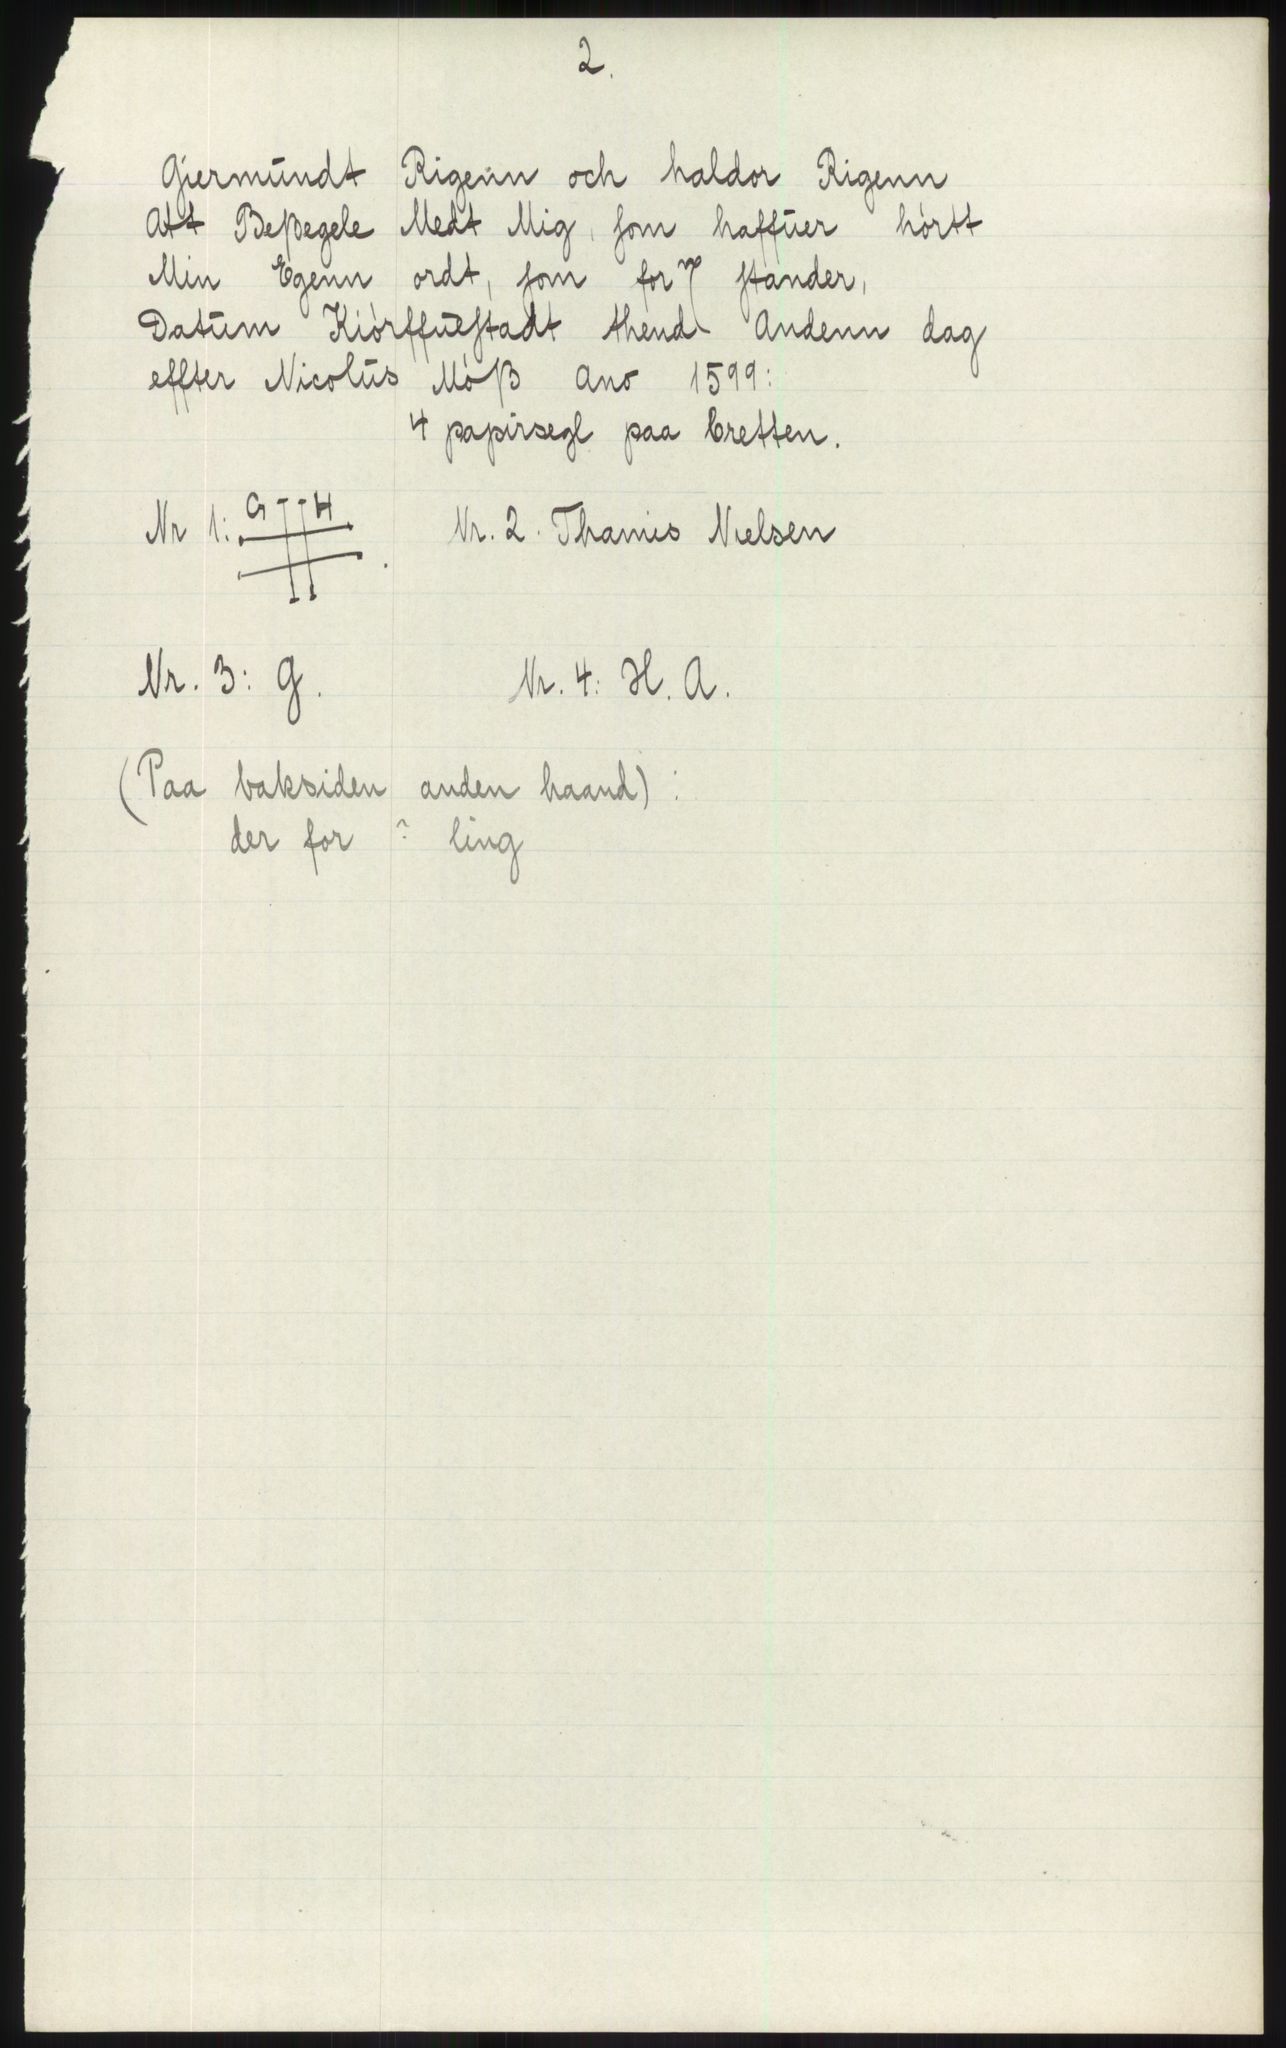 2.
Gjermŭndt Rigenn och haldor Rigenn
Att Beßegele Medt Mig, som haffŭer hórtt
Min Egenn ordt, som for stander,
Datŭm Kiórffŭestadt thend Andenn dag
effter Nicolŭs Móß Ano 1599:
4 papirsegl paa bretten.
Nr 1: G H Nr. 2. Thamis Nielsen
Nr. 3: G. Nr. 4: H. A.
(Paa baksiden anden haand):
der for ? ling